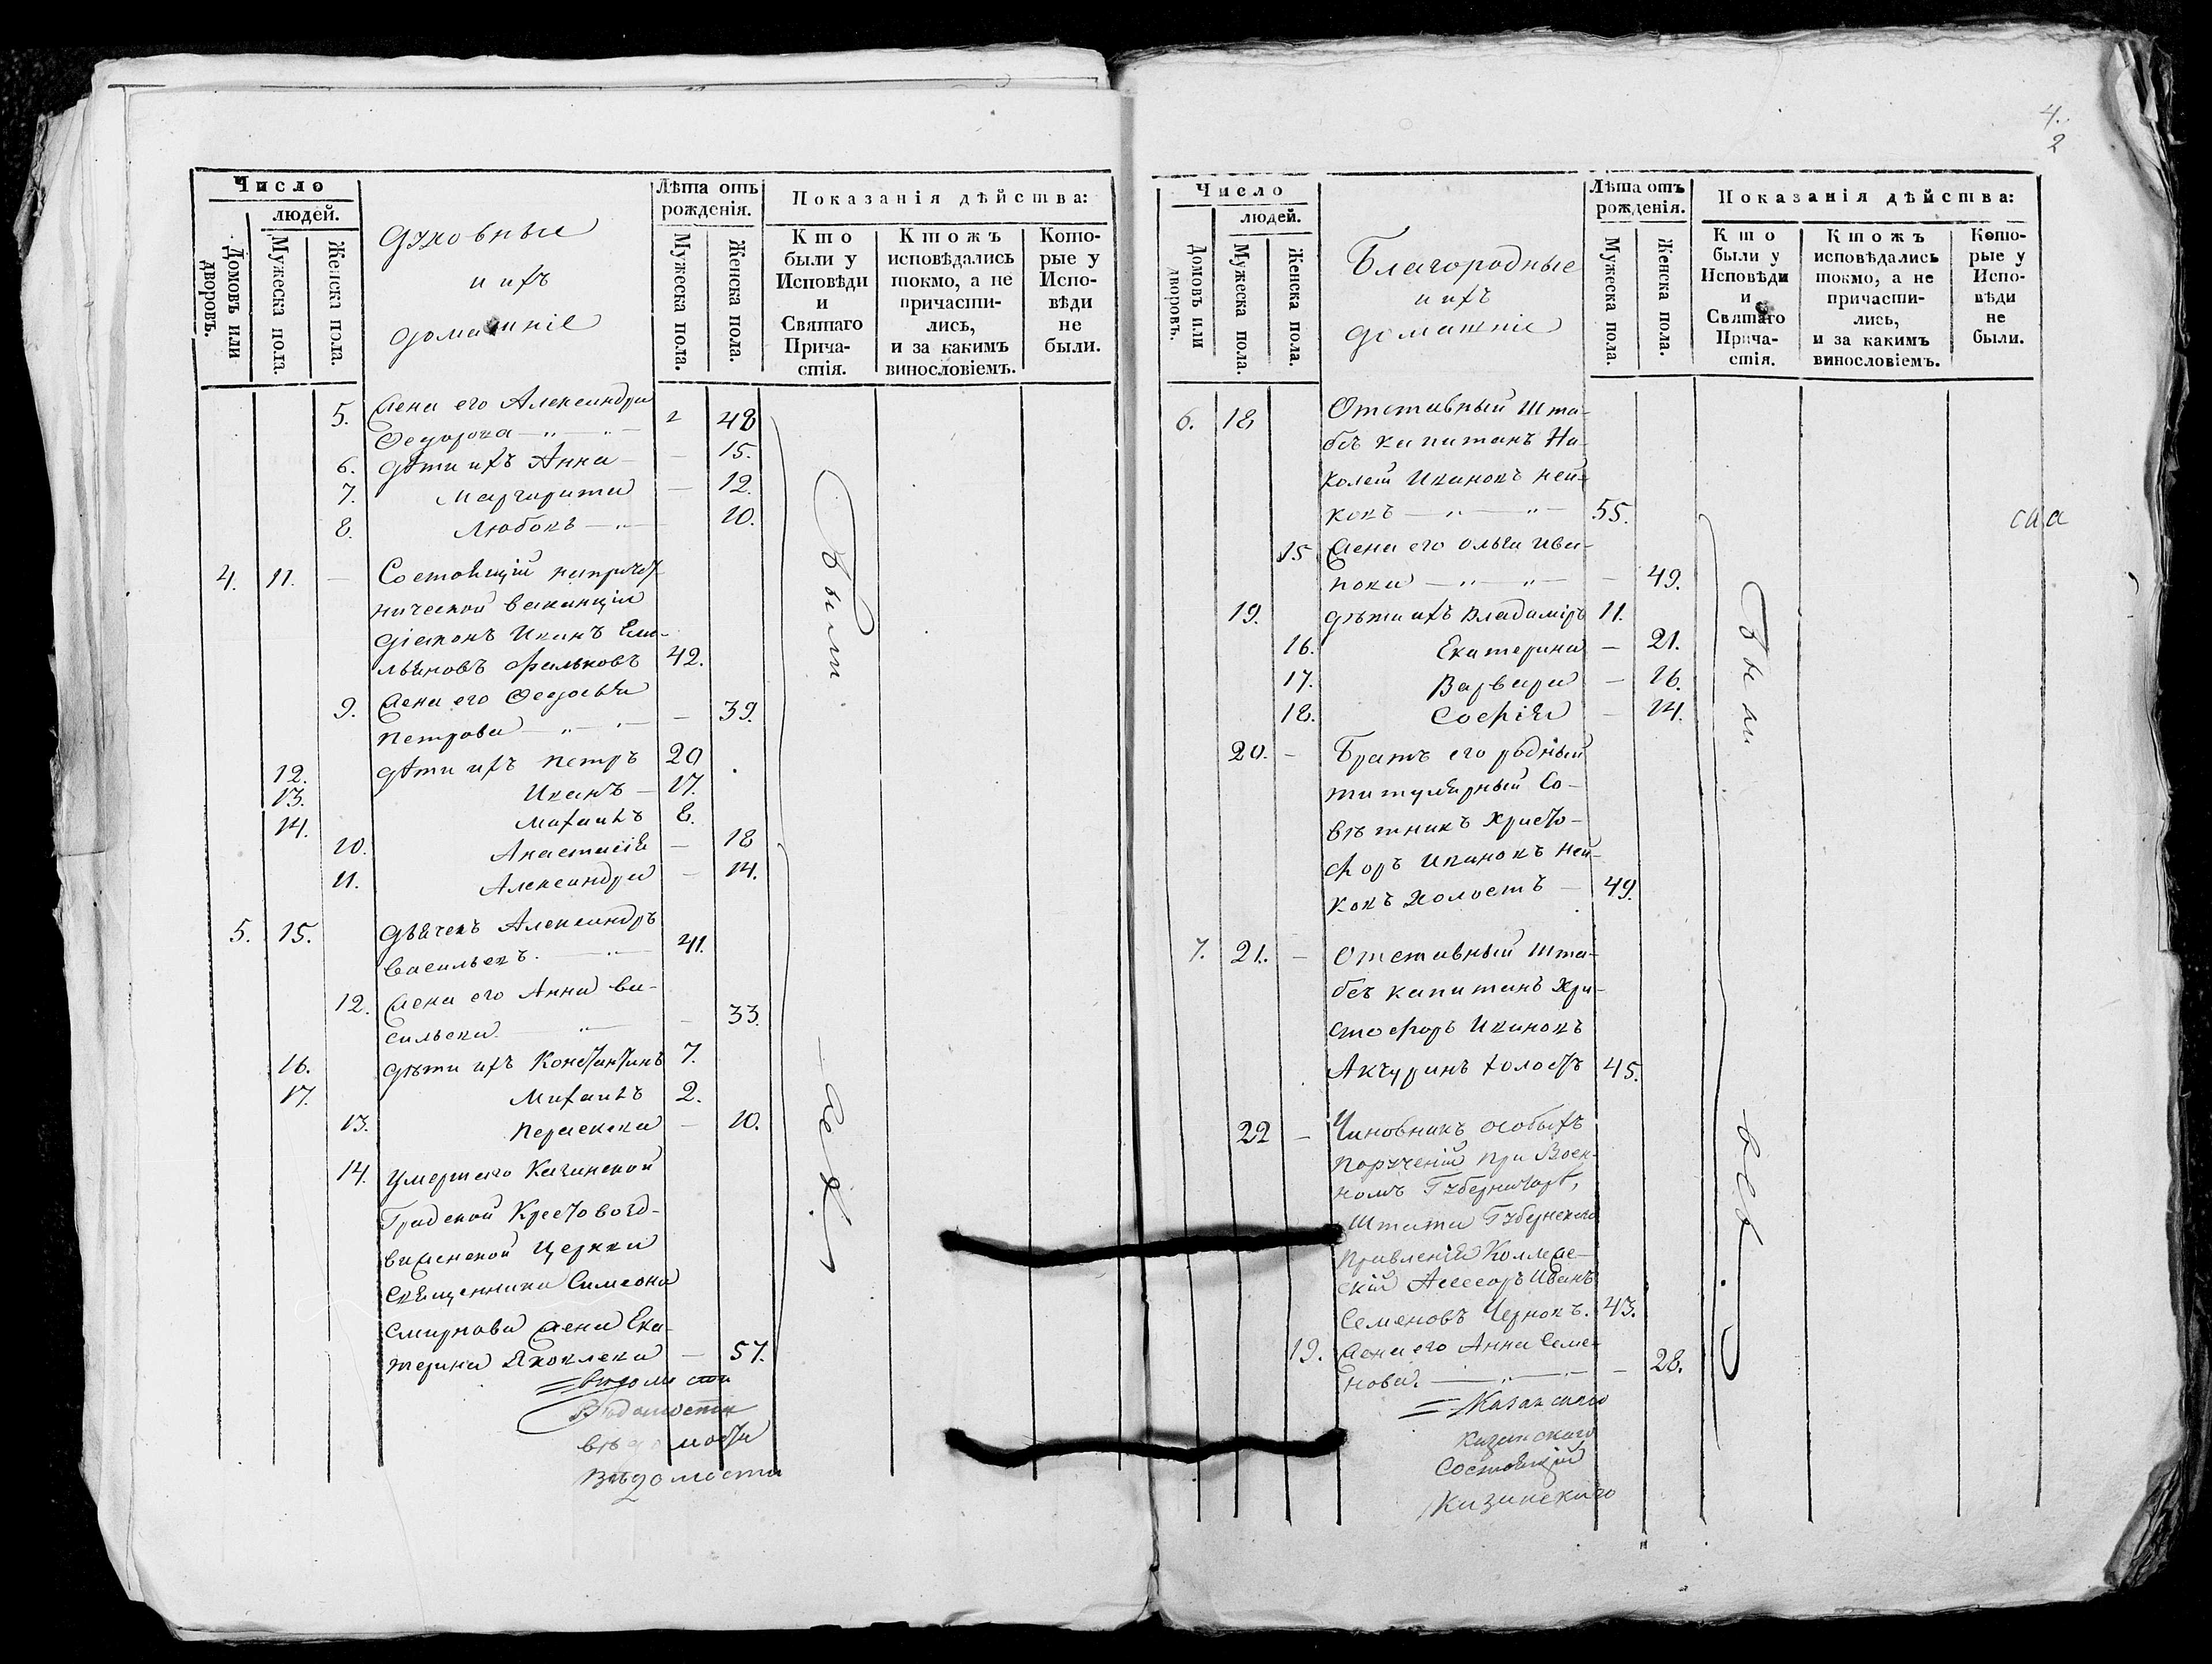 Число
людей.
Домовъ или дворовъ.
Мужеска пола.
Женска пола.
Духовные
и ихъ
домашніе
Лѣта отъ
рожденія.
Мужеска пола.
Женска пола.
Показанія дѣйства:
Кто
были у
Исповѣди
и
Святаго
Прича-
стія.
Ктожъ
исповѣдались
токмо, а не
причасти-
лись,
и за какимъ
винословіемъ.
Кото-
рые у
Испо-
вѣди
не
были.
5. Жена его Александра
Федорова — 48
6. Дѣти ихъ Анна — 15.
7. Маргарита — 12.
8. Любовь — 10.
4. 11. — Состоящій на причет-
нической ваканціи
Діаконъ Иванъ Еми-
льяновъ Фальковъ 42.
9. Жена его Федосья
Петрова — 39.
12. Дѣти ихъ Петръ 20
13. Иванъ — 17.
14. Михаилъ 8.
10. Анастасія — 18
11. Александра — 14.
5. 15. Дьячекъ Александръ
Васильевъ. — 41.
12. Жена его Анна Ва-
сильева — 33.
16. Дѣти ихъ Константинъ 7.
17. Михаилъ 2.
13. — 10.
14. Умершаго Казанской
Градской Крестовозд-
виженской Церкви
Священника Симеона
Смирнова жена Ека-
терина Яковлева — 57.
Были
всѣ
вѣдомости
Вѣдомости
вѣдомости
Вѣдомости
4.
2
Число
людей.
Домовъ или дворовъ.
Мужеска пола.
Женска пола.
Благородные
и ихъ
домашніе
Лѣта отъ
рожденія.
Мужеска пола.
Женска пола.
Показанія дѣйства:
Кто
были у
Исповѣди
и
Святаго
Прича-
стія.
Ктожъ
исповѣдались
токмо, а не
причасти-
лись,
и за какимъ
винословіемъ.
Кото-
рые у
Испо-
вѣди
не
были.
6. 18 Отставный Шта-
бсъ капитанъ Ни-
колай Ивановъ Ней-
ковъ — 55.
15 Жена его Ольга Ива-
нова — 49.
19. Дѣти ихъ Владаміръ 11.
16. Екатерина — 21.
17. Варвара — 16.
18. Софія — 14.
20. — Братъ его родный
титулярный Со-
вѣтникъ Христо-
форъ Ивановъ Ней-
ковъ холостъ — 49.
7. 21. — Отставный Шта-
бсъ капитанъ Хри-
стофоръ Ивановъ
Акчуринъ холостъ 45.
22 — Чиновникъ особыхъ
порученій при Воен-
номъ Губернаторѣ,
Штата Губернскаго
Правленія Коллеж-
скій Асессоръ Иванъ
Семеновъ Черновъ. 43.
19. Жена его Анна Семе-
нова. — 28.
Были
всѣ.
Казанскаго
Казанскаго
Состоящій
Казанскаго